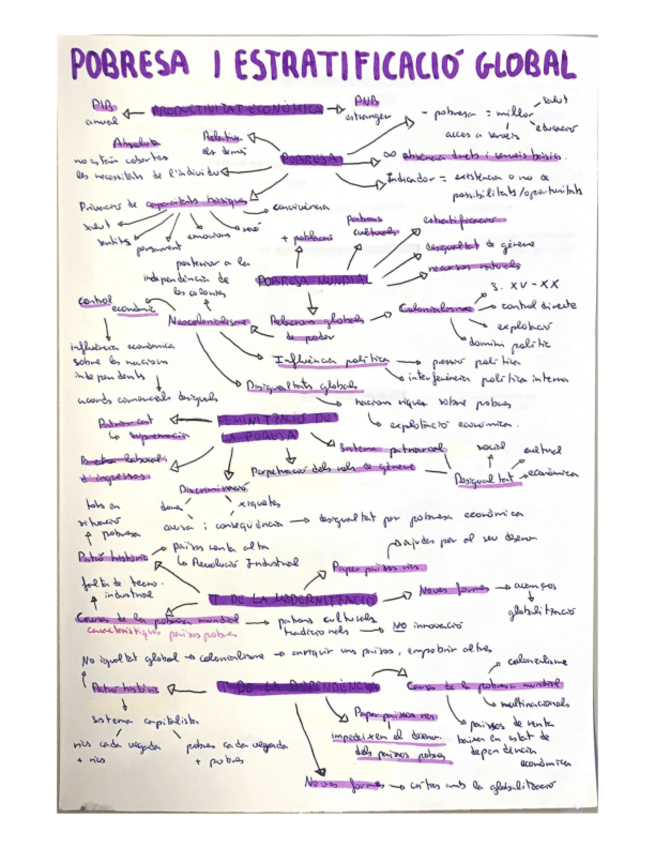 POBRESA I ESTRATIFICACIÓ GLOBAL
PIB anual
PRODUCTIVITAT ECONÒMICA
PNB estranger
- pobresa = millor
salut
educació
accés a serveis
Absoluta
no estàn cobertes
les necessitats de l'individu
Relativa
els demés
POBRESA
absència drets i serveis bàsics.
Indicador = existència o no de
possibilitats/oportunitats
Privacions de capacitats bàsiques
salut
sentits
pensament
emocions
convivència
+ poblacions
patrons
culturals
estratificació
desigualtat de gènere
recursos naturals
POBRESA MUNDIAL
posterior a la
independència de
les colonies
control
econòmic
Neocolonialisme
Relacions globals
de poder
Colonialisme
S. XV-XX
control directe
explotació
domini polític
influència econòmica
sobre les nacions
independents
acords comercials desiguals
Influència política
pressió política
interferència política interna
Desigualtats globals
nacions riques sobre pobres
explotació econòmica.
FEMINITZACIÓ DE
LA POBRESA
Patriarcat
supremacia
Bretxa laboral
d'ingressos
Discriminació
dones
xiquetes
causa i conseqüència
desigualtat per pobresa econòmica
Perpetuació dels rols de gènere
Sistema patriarcal
Desigualtat
social
cultural
econòmica
tots en
situació
pobresa
Patró històric
països renta alta
Revolució Industrial
T. DE LA MODERNITZACIÓ
Paper països rics
ajudes per al seu desenv
Noves formes
avanços
globalització
falta de tecno.
industrial
Causes de la pobresa mundial
característiques països pobres
patrons culturals
tradicionals
NO innovació
No igualtat global
colonialisme
enriquir uns països, empobrir altres
Patró històric
sistema capitalista
rics cada vegada
+ rics
pobres cada vegada
+ pobres
T. DE LA DEPENDÈNCIA
Causes de la pobresa mundial
colonialisme
multinacionals
països de renta
baixa en estat de
dependència
econòmica
Paper països rics
impedeixen el desenv
dels països pobres
Noves formes
crítics amb la globalització